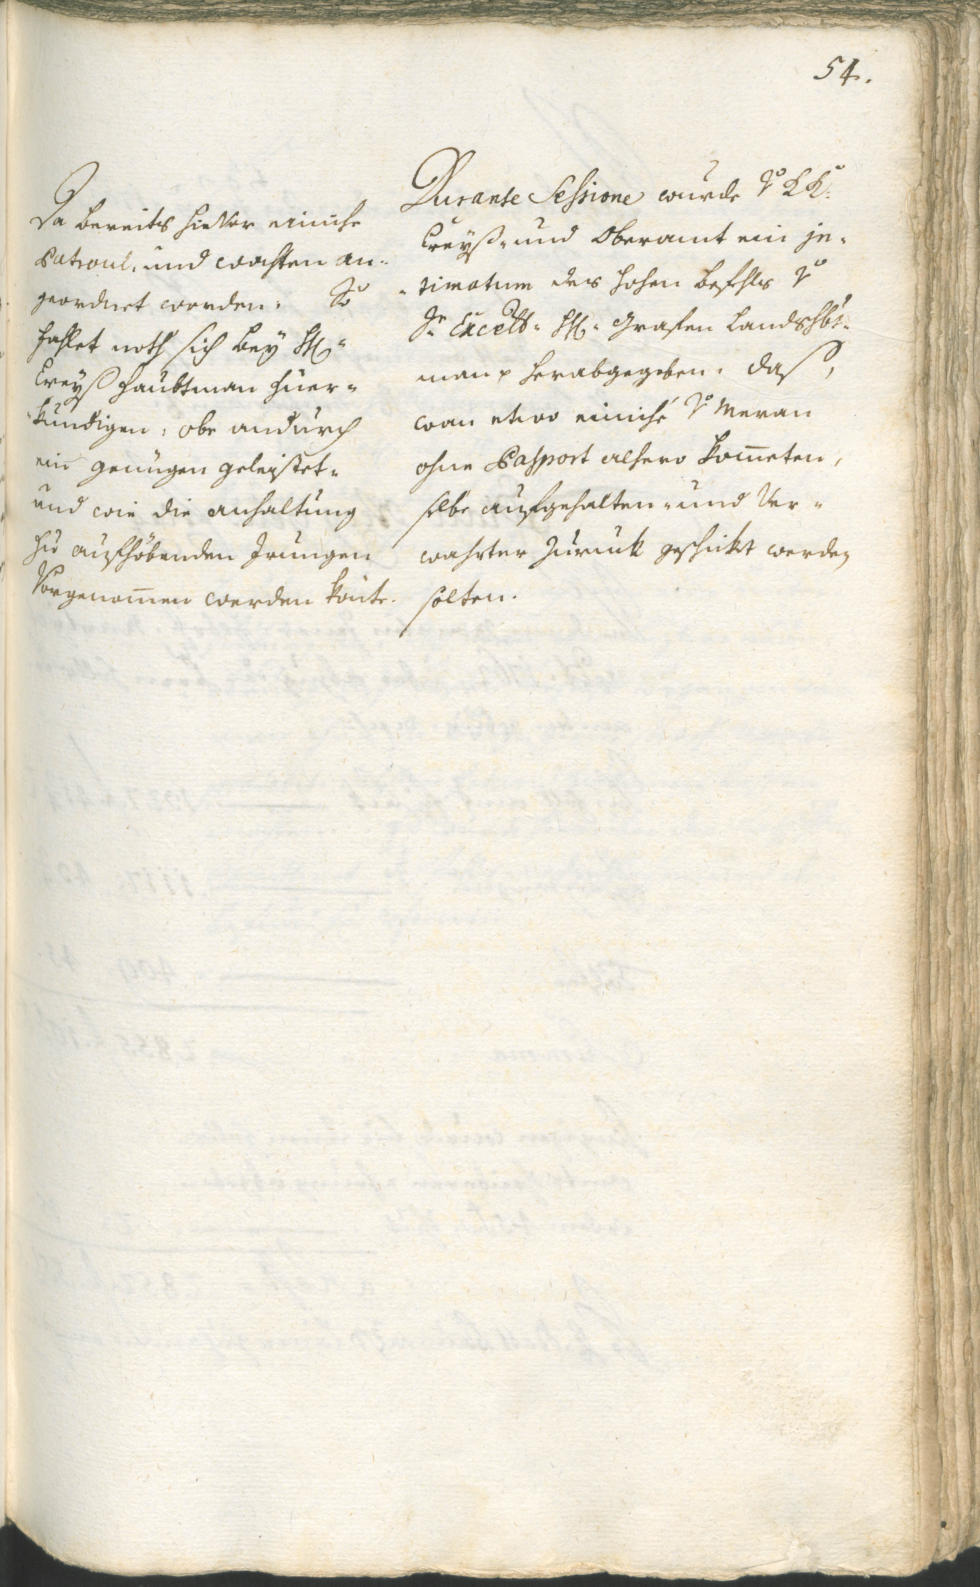 54.
Da bereits hievor einiche
Patroul- und wachten an-
geordnet worden: So
hafftet noch sich bey H:
Creyß haubtman zu er-
kundigen, obe andurch
ein genügen geleistet-
und wie die anhaltung
hie aufhöbenden Irungen
Vorgenommen werden könte.
Durante Sessione wurde K. K.
Creyß- und Oberamt ein in-
timatum des hohen Befehls
Sr. Excell: H: Grafen Landshbt-
mann herabgegeben. daß,
wan etwo einiche Meran
ohne Passport alhero kommeten,
selbe aufgehalten- und Ver-
wahrter zuruck geschickt werden
solten.